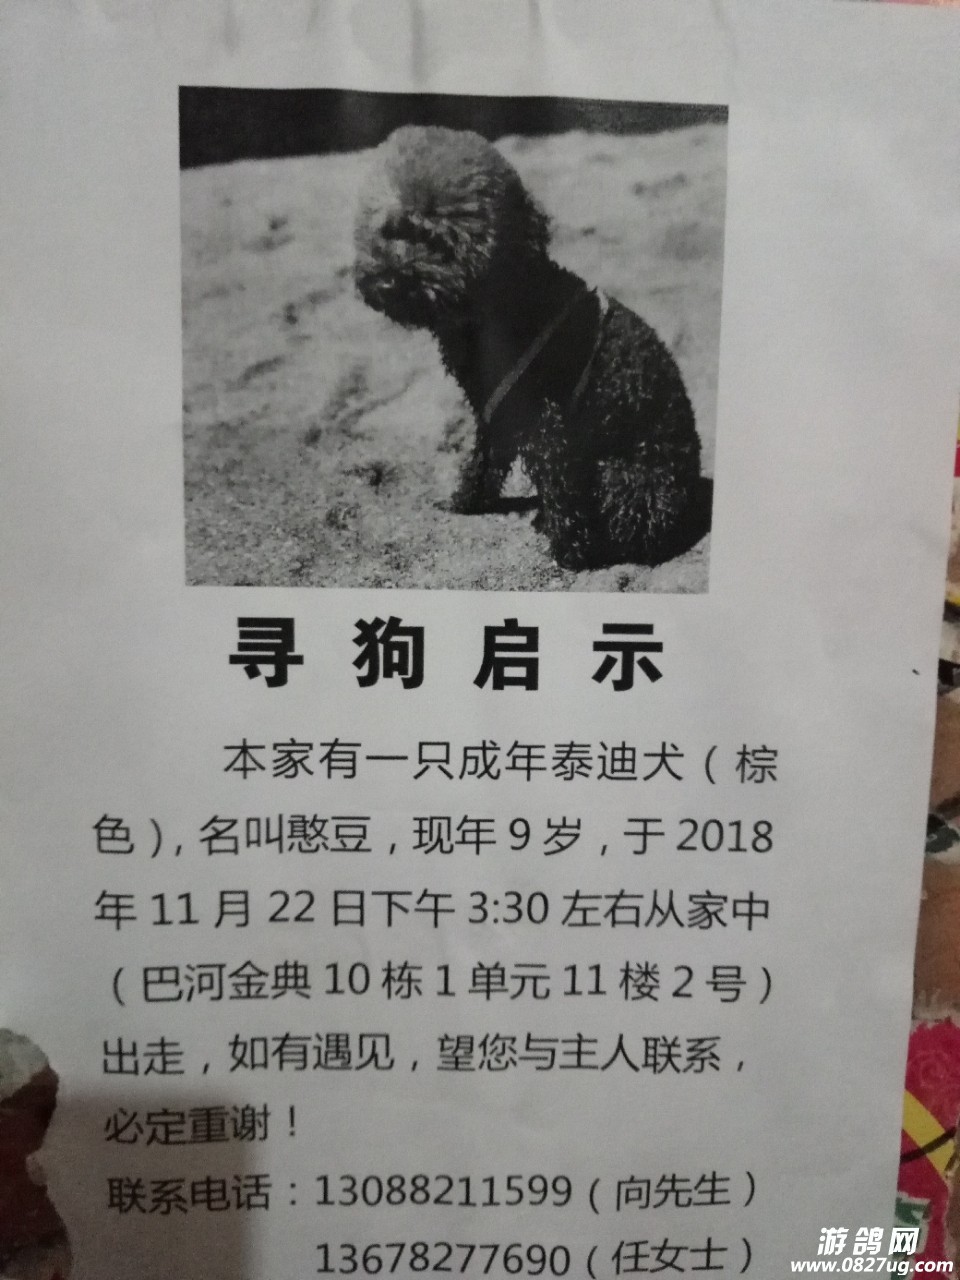 寻狗启示
本家有一只成年泰迪犬（棕
色），名叫憨豆，现年9岁，于2018
年11月22日下午3:30左右从家中
（巴河金典10栋1单元11楼2号）
出走，如有遇见，望您与主人联系，
必定重谢！
联系电话：13088211599（向先生）
13678277690（任女士）
游鸽网
www.0827ug.com